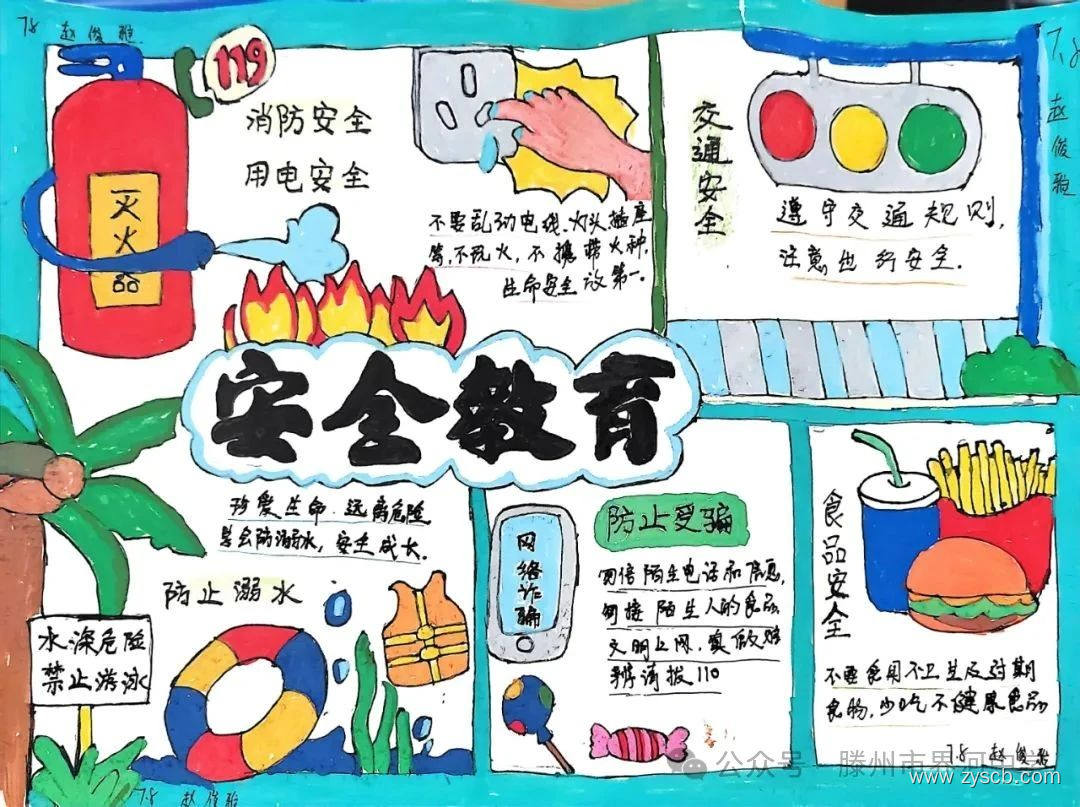 7.8 赵俊雅
119
消防安全
用电安全
灭火器
不要乱动电线、灯头插座
等,不玩火,不携带火种,
生命安全放第一。
交通安全
遵守交通规则,
注意出行安全.
7.8 赵俊雅
安全教育
珍爱生命 远离危险
学会防溺水,安全成长.
防止溺水
水深危险
禁止游泳
7.8 赵俊雅
网络诈骗
防止受骗
勿信陌生电话和信息,
勿接陌生人的食品
文明上网,
请拨110
食品安全
不要食用不卫生及过期
食物,少吃不健康食品
7.8 赵俊雅
公众号 滕州市界河
www.zyscb.com